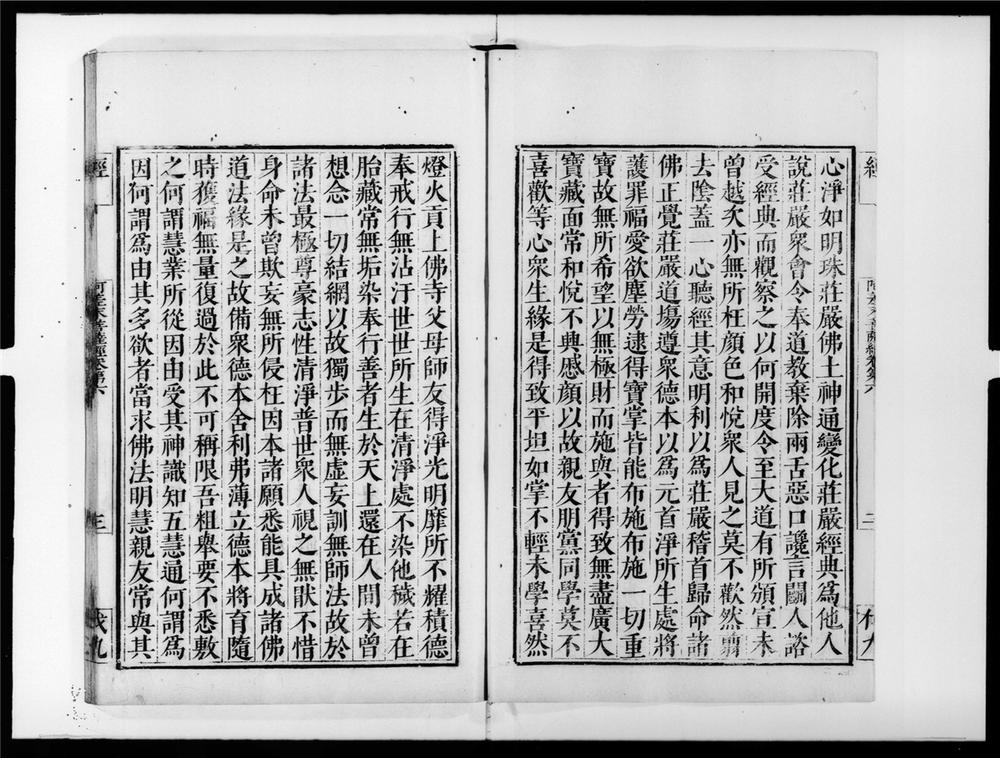 心淨如明珠莊嚴佛土神通變化莊嚴經典爲他人
說莊嚴衆會令奉道教棄除兩舌惡口讒言鬭人諮
受經典而觀察之以何開度令至大道有所頒宣未
曾越次亦無所枉顏色和悅衆人見之莫不歡然翦
去陰蓋一心聽經其意明利以爲莊嚴稽首歸命諸
佛正覺莊嚴道場遵衆德本以爲元首淨所生處將
護罪福愛欲塵勞逮得寶掌皆能布施布施一切重
寶故無所希望以無極財而施與者得致無盡廣大
寶藏面常和悅不興慼顏以故親友朋黨同學莫不
喜歡等心衆生緣是得致平坦如掌不輕未學喜然
燈火貢上佛寺父母師友得淨光明靡所不耀積德
奉戒行無沾汙世世所生在清淨處不染他穢若在
胎藏常無垢染奉行善者生於天上還在人間未曾
想念一切結網以故獨步而無虛妄訓無師法故於
諸法最極尊豪志性清淨普世衆人視之無猒不惜
身命未曾欺妄無所侵枉因本諸願悉能具成諸佛
道法緣是之故備衆德本舍利弗薄立德本將育隨
時獲福無量復過於此不可稱限吾粗舉要不悉敷
之何謂慧業所從因由受其神識知五慧通何謂爲
因何謂爲由其多欲者當求佛法明慧親友常與其
經
阿差末菩薩經卷第六
二
經
阿差末菩薩經卷第六
三